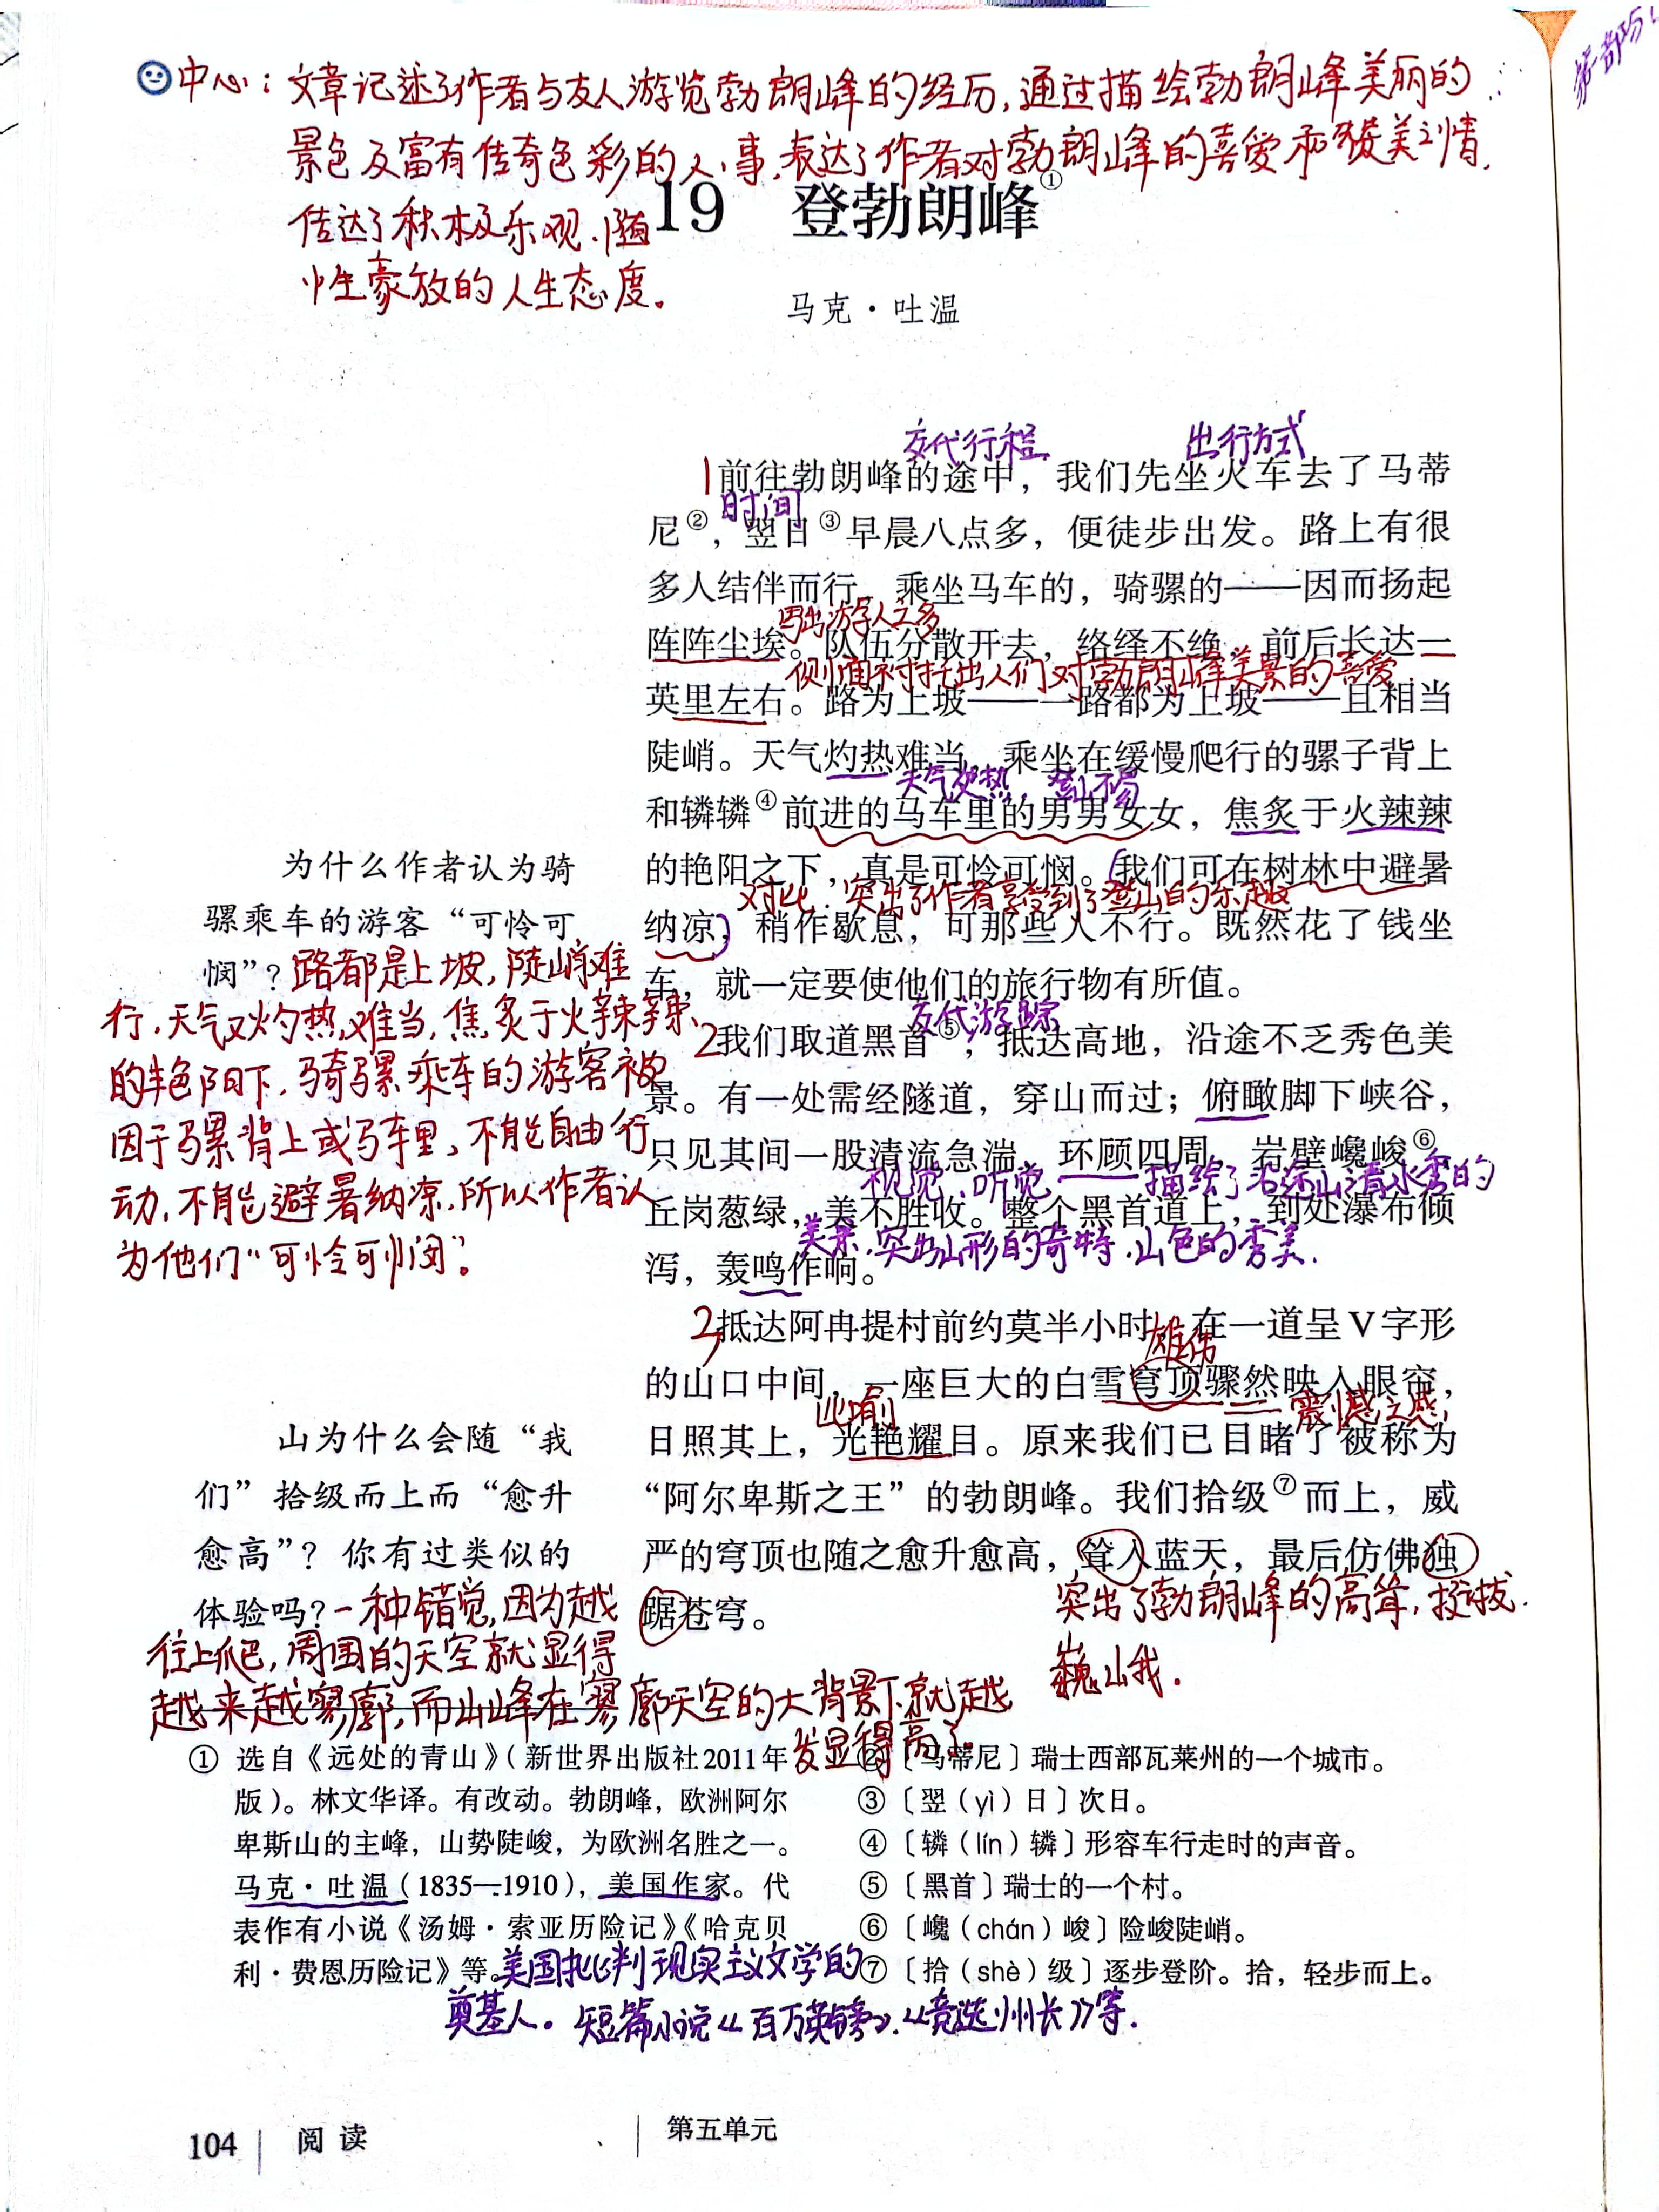 中心：文章记述了作者与友人游览勃朗峰的经历，通过描绘勃朗峰美丽的
景色及富有传奇色彩的人事，表达了作者对勃朗峰的喜爱和赞美之情，
传达了积极乐观、随
性豪放的人生态度。
19 登勃朗峰①
马克·吐温
交代行程
出行方式
1前往勃朗峰的途中，我们先坐火车去了马蒂
时间
尼②，翌日③早晨八点多，便徒步出发。路上有很
多人结伴而行，乘坐马车的，骑骡的——因而扬起
写出游人之多
阵阵尘埃。队伍分散开去，络绎不绝，前后长达一
侧面衬托出人们对勃朗峰美景的喜爱
英里左右。路为上坡——一路都为上坡——且相当
陡峭。天气灼热难当，乘坐在缓慢爬行的骡子背上
天气炎热，登山不易
和辚辚④前进的马车里的男男女女，焦炙于火辣辣
的艳阳之下，真是可怜可悯。我们可在树林中避暑
对比：突出了作者享受到了登山的乐趣
纳凉，稍作歇息，可那些人不行。既然花了钱坐
车，就一定要使他们的旅行物有所值。
交代游踪
2我们取道黑首⑤，抵达高地，沿途不乏秀色美
景。有一处需经隧道，穿山而过；俯瞰脚下峡谷，
只见其间一股清流急湍，环顾四周，岩壁巉峻⑥，
视觉、听觉——描绘了沿途山清水秀的
丘岗葱绿，美不胜收。整个黑首道上，到处瀑布倾
美景，突出山形的奇特，山色的秀美．
泻，轰鸣作响。
3抵达阿冉提村前约莫半小时，在一道呈V字形
雄伟
的山口中间，一座巨大的白雪穹顶骤然映入眼帘，
比喻
震撼之感
日照其上，光艳耀目。原来我们已目睹了被称为
“阿尔卑斯之王”的勃朗峰。我们拾级⑦而上，威
严的穹顶也随之愈升愈高，耸入蓝天，最后仿佛独
踞苍穹。
突出了勃朗峰的高耸，挺拔．
巍峨．
为什么作者认为骑
骡乘车的游客“可怜可
悯”？路都是上坡，陡峭难
行，天气又灼热难当，焦炙于火辣辣
的艳阳下，骑骡乘车的游客被
因于骡背上或马车里，不能自由行
动，不能避暑纳凉，所以作者认
为他们“可怜可悯”。
山为什么会随“我
们”拾级而上而“愈升
愈高”？你有过类似的
体验吗？一种错觉，因为越
往上爬，周围的天空就显得
越来越寥廓，而山峰在寥廓天空的大背景下就越
发显得高了。
① 选自《远处的青山》（新世界出版社2011年
版）。林文华译。有改动。勃朗峰，欧洲阿尔
卑斯山的主峰，山势陡峻，为欧洲名胜之一。
马克·吐温（1835—1910），美国作家。代
表作有小说《汤姆·索亚历险记》《哈克贝
利·费恩历险记》等。美国批判现实主义文学的
奠基人。短篇小说《百万英镑》、《竞选州长》等．
②〔马蒂尼〕瑞士西部瓦莱州的一个城市。
③〔翌（yì）日〕次日。
④〔辚（lín）辚〕形容车行走时的声音。
⑤〔黑首〕瑞士的一个村。
⑥〔巉（chán）峻〕险峻陡峭。
⑦〔拾（shè）级〕逐步登阶。拾，轻步而上。
104 阅读
第五单元